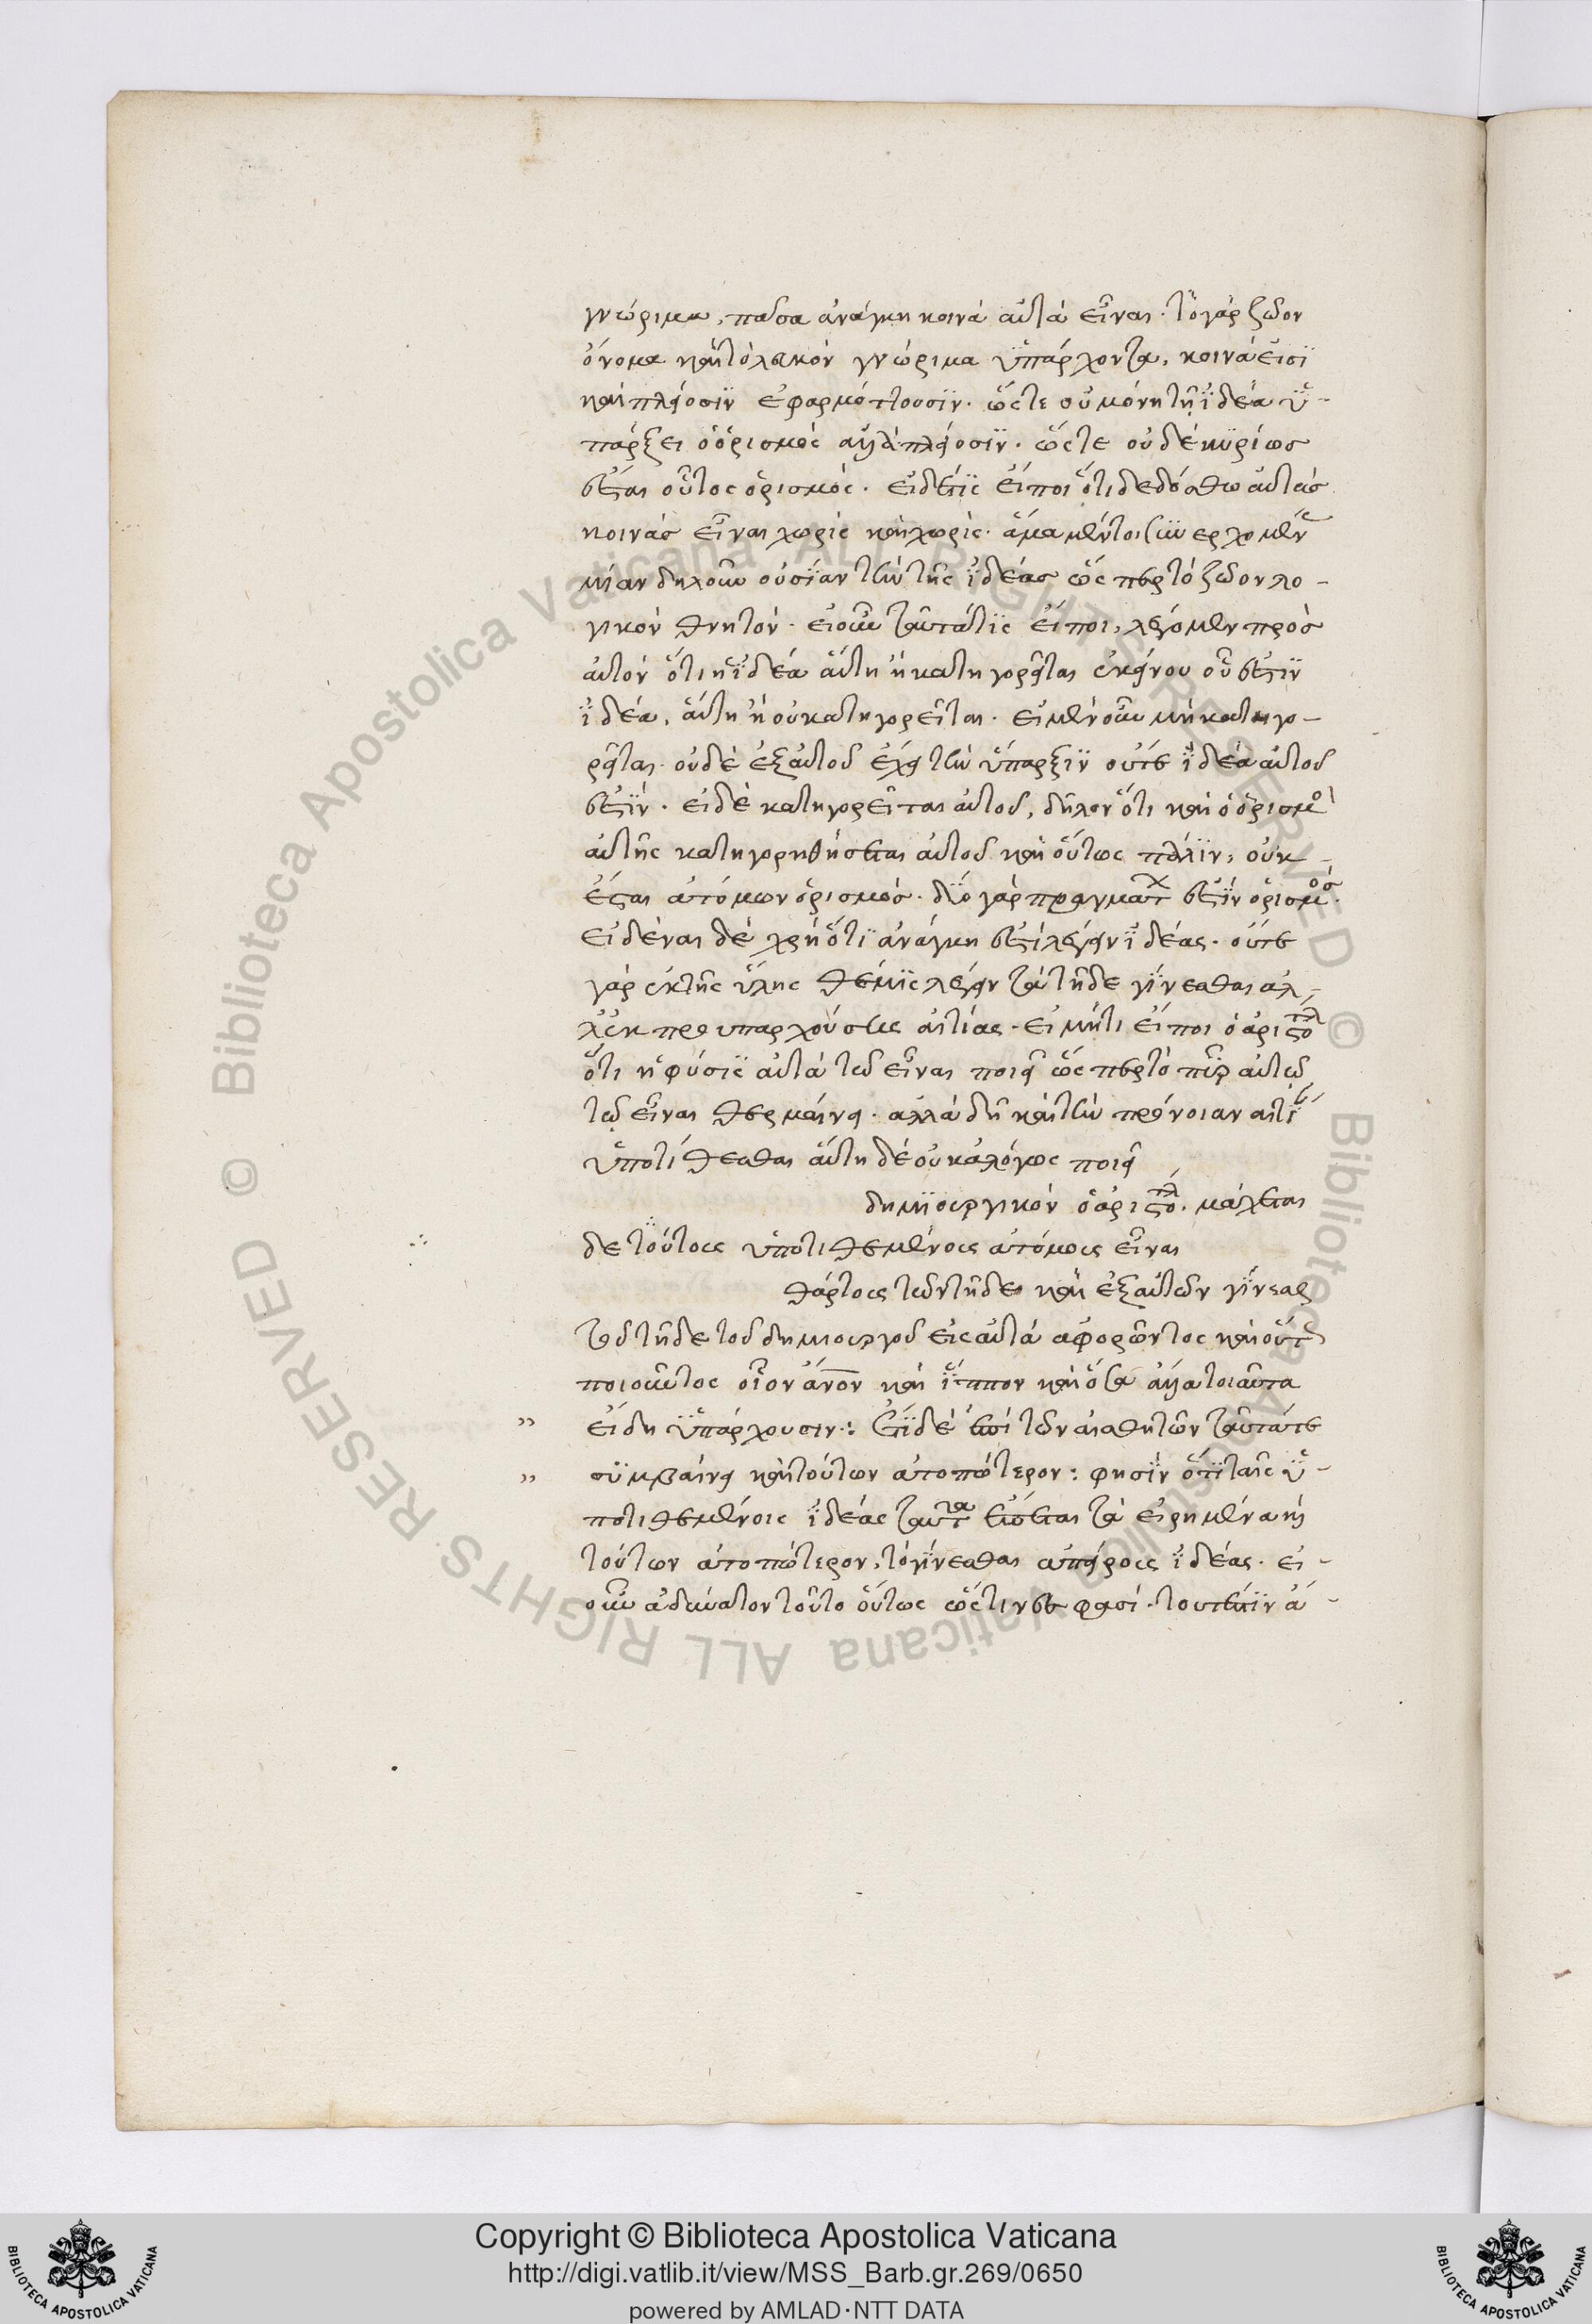 γνώριμα, πᾶσα ἀνάγκη κοινὰ αὐτὰ εἶναι. τὸ γὰρ ζῶον
ὄνομα καὶ τὸ λευκὸν γνώριμα ὑπάρχοντα, κοινά εἰσι
καὶ πλείοσιν ἐφαρμόττουσιν. ὥστε οὐ μόνη τῆ ἰδέα ὑ-
πάρξει ὁ ὁρισμὸς ἀλλὰ πλείοσιν. ὥστε οὐδὲ κυρίως
ἔσται οὗτος ὁρισμός. εἰ δέ τις εἴποι ὅτι δεδόσθω αὐτὰς
κοινὰς εἶναι χωρὶς καὶ χωρίς. ἅμα μέντοι συνερχομέν
μίαν δηλοῦν οὐσίαν τὴν τῆς ἰδέας ὥσπερ τὸ ζῶον λο-
γικὸν θνητόν. εἰ οὖν ταῦτά τις εἴποι, λέγομεν πρὸς
αὐτὸν ὅτι ἡ ἰδέα αὕτη ἢ κατηγορεῖται ἐκείνου οὗ ἐστὶν
ἰδέα, αὕτη ἢ οὐ κατηγορεῖται. εἰ μὲν οὖν μὴ κατηγο-
ρεῖται. οὐδὲ ἐξ αὐτοῦ ἔχει τὴν ὕπαρξιν οὔτε ἰδέα αὐτοῦ
ἐστίν. εἰ δὲ κατηγορεῖται αὐτοῦ, δῆλον ὅτι καὶ ὁ ὁρισμὸ
αὐτῆς κατηγορηθήσεται αὐτοῦ καὶ οὕτως πάλιν, οὐκ
ἔσται ἀτόμων ὁρισμός. δύο γὰρ πραγμάτ ἐστὶν ὁρισμός.
εἰδέναι δὲ χρὴ ὅτι ἀνάγκη ἐστὶ λέγειν ἰδέας. οὔτε
γὰρ ἐκ τῆς ὕλης θέμις λέγειν τὰ τῆδε γίνεσθαι ἀλ,
λ' ἐκ προυπαρχούσης αἰτίας. εἰ μήτι εἴποι ὁ ἀριστο
ὅτι ἡ φύσις αὐτὰ τῶ εἶναι ποιεῖ ὥσπερ τὸ πῦρ αὐτῶ
τῶ εἶναι θερμαίνει. ἀλλὰ δὴ καὶ τὴν πρόνοιαν αἰτί
ὑποτίθεσθαι αὕτη δὲ οὐκ ἀλόγως ποιεῖ
δημιουργικὸν ὁ ἀριστο. μάχεται
δὲ τούτοις ὑποτιθεμένοις ἀτόμοις εἶναι
θάρτοις τῶν τῆδε καὶ ἐξ αὐτῶν γίνεσθαι
τοῦ τῆδε τοῦ δημιουργοῦ εἰς αὐτὰ ἀφορῶντος καὶ οὕτ
ποιοῦντος οἷον ἄνον καὶ ἵππον καὶ ὅσα ἄλλα τοιαῦτα
" εἴδη ὑπάρχουσιν: Ἔτι δὲ ἐπὶ τῶν αἰσθητῶν ταῦτά τε
" συμβαίνει καὶ τούτων ἀτοπώτερον: φησὶν ὅτι ταῖς ὑ-
ποτιθεμένοις ἰδέας ταῦτα ἕπεται τὰ εἰρημένα ἢ
τούτων ἀτοπώτερον, τὸ γίνεσθαι ἀπείροις ἰδέας. εἰ-
οὖν ἀδύνατον τοῦτο οὕτως ὥς τινές φασί. τουτέστιν ἀ-
Copyright © Biblioteca Apostolica Vaticana
http://digi.vatlib.it/view/MSS_Barb.gr.269/0650
powered by AMLAD·NTT DATA